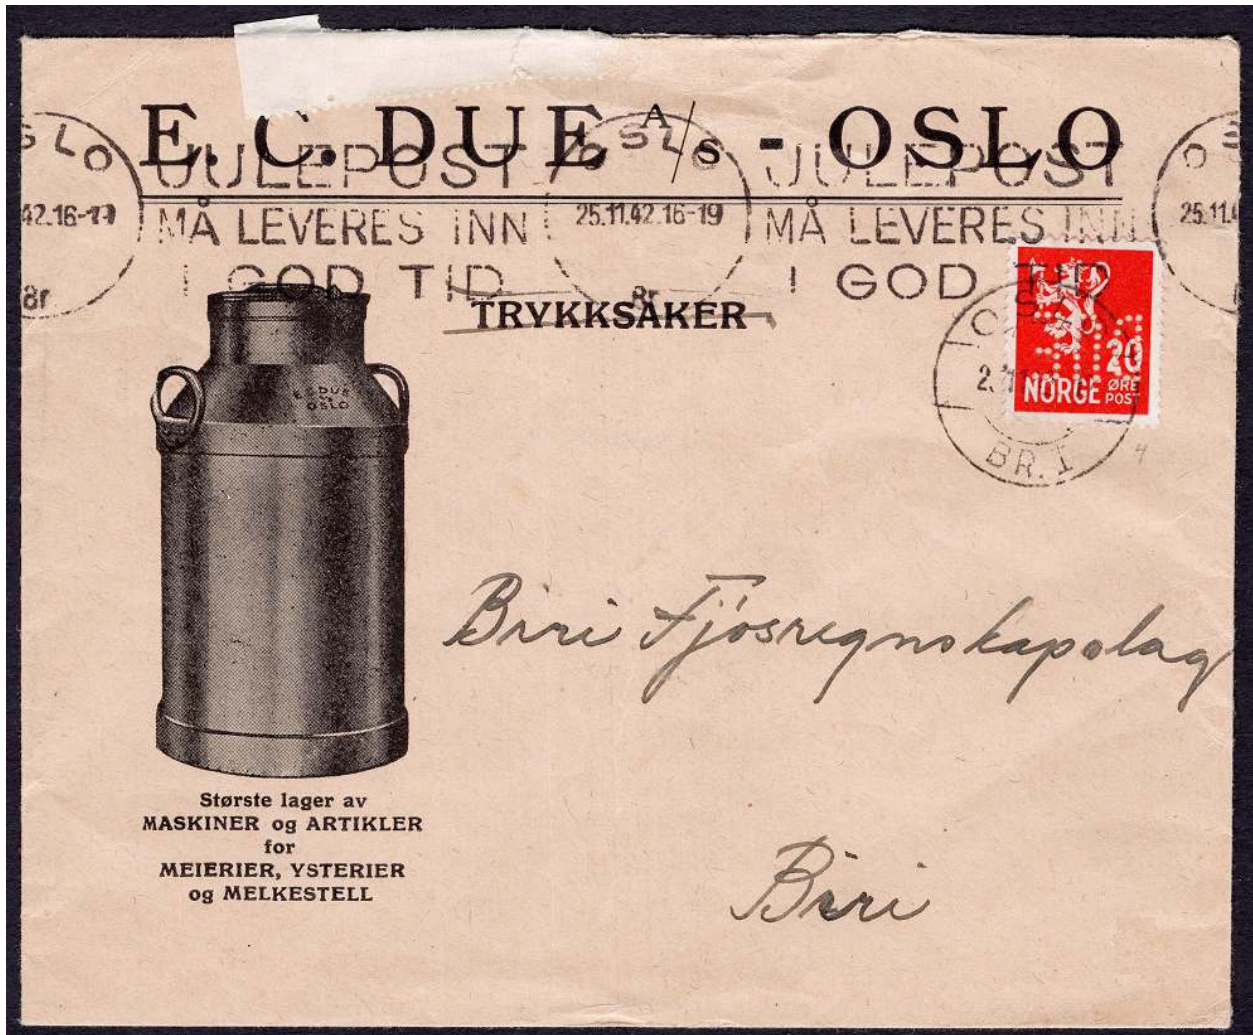 E. C. DUE A/S - OSLO
OSLO
JULEPOST
MÅ LEVERES INN
I GOD TID
OSLO
25.11.42.16-19
Br
JULEPOST
MÅ LEVERES INN
I GOD TID
OSLO
25.11.4
42.16-19
Br
TRYKKSAKER
20
NORGE ØRE
POST
BR. I
E. C. DUE
OSLO
Biri Fjøsregnskapslag
Biri
Største lager av
MASKINER og ARTIKLER
for
MEIERIER, YSTERIER
og MELKESTELL